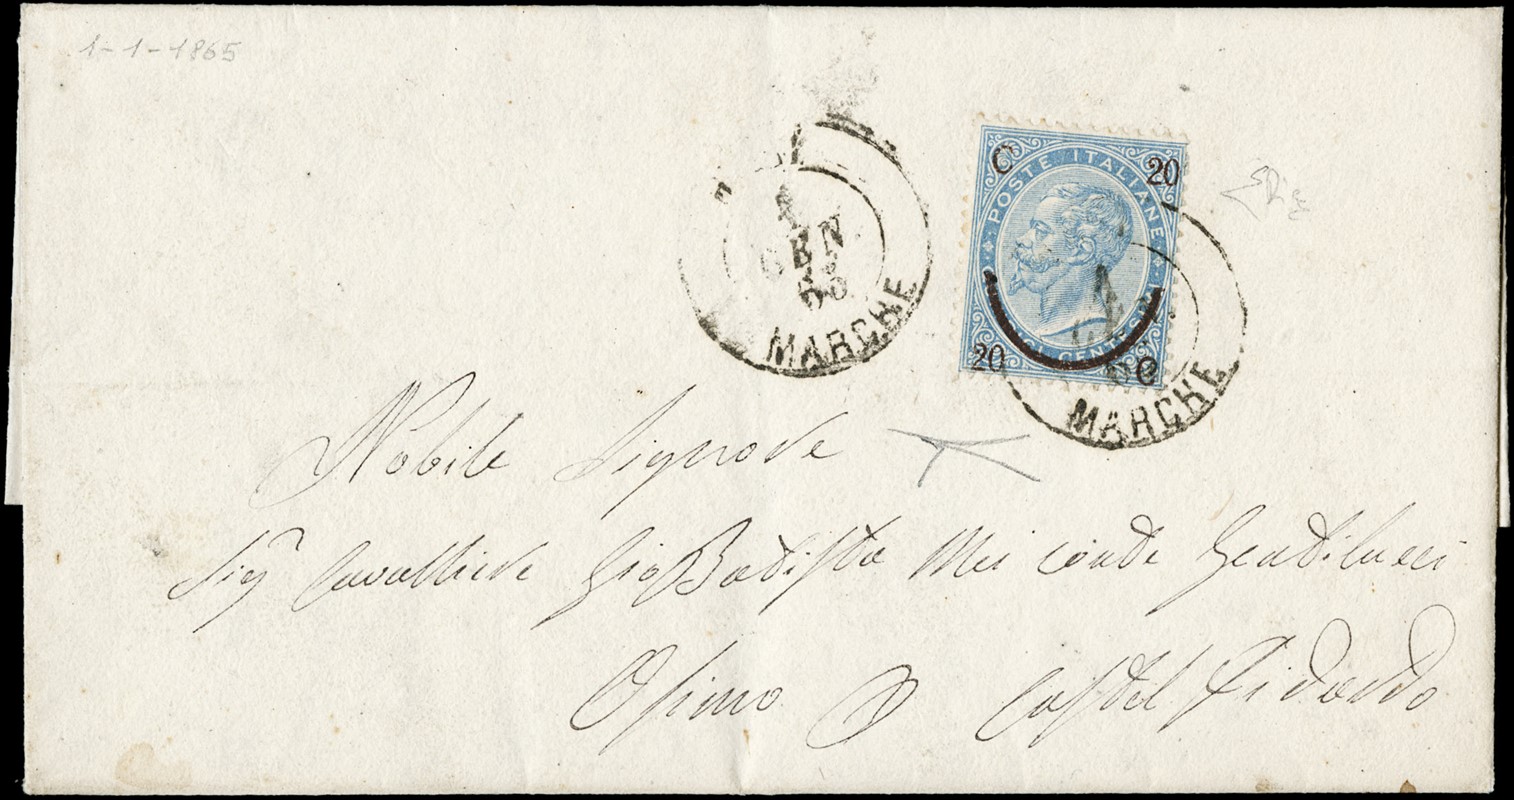 1-1-1865
1
GEN
65
MARCHE
C 20
POSTE ITALIANE
CENTESIMI
20 C
MARCHE
Nobile Signore
Sigr Cavalliere Gio Battista Mei Conte Gentilucci
Osimo P Castel Fidardo